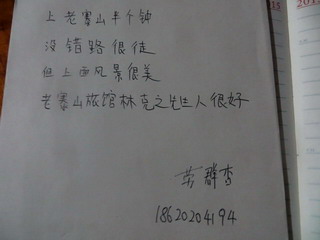 上老寨山半个钟
没错路很徒
但上面风景很美
老寨山旅馆林克之先生人很好
劳群杏
18620204194